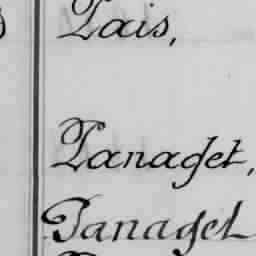 Pais,
Panaget,
Panaget